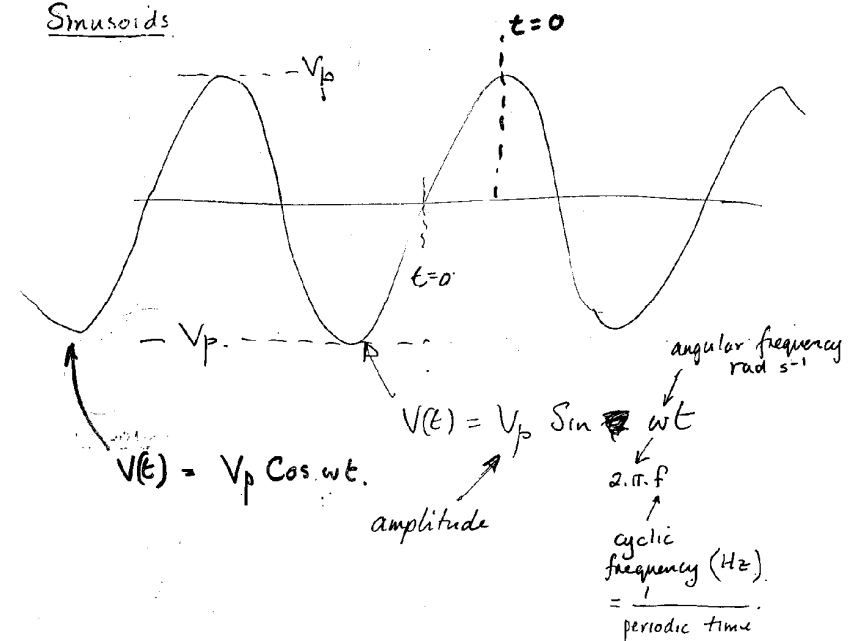 Sinusoids
t=0
- - Vp
t=0
- Vp. - - -
angular frequency
rad s-1
V(t) = Vp Sin wt
V(t) = Vp Cos wt.
2.π.f
amplitude
cyclic
frequency (Hz)
= 1
periodic time